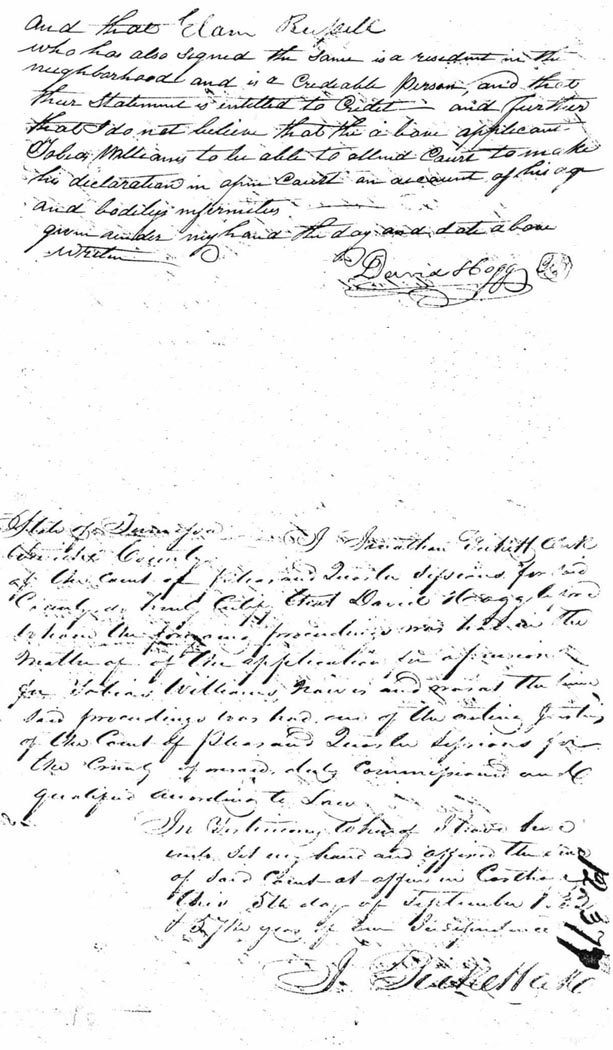 And that Elam Russell
who has also signed the same is a resident in the
neighborhood and is a Credeable Person, and that
their Statement is entitled to Credit and further
that I do not believe that the above applicant
Tobias Williams to be able to attend Court to make
his declaration in open Court on account of his age
and bodily infirmeties
given under my hand the day and date above
written
David Hogg
State of Tennessee
County I Jonathan Clerk
of the Court of Pleas and Quarter Sessions for said
County do that David Hogg before
whom the foregoing proceedings was had in the
matter of the application for a pension
for Tobias Williams, now is and was at the time
said proceedings was had one of the acting Justices
of the Court of Pleas and Quarter Sessions for
the County aforesaid duly Commissioned and
qualified according to Law
In Testimony whereof I have here
unto set my hand and affixed the seal
of said Court at office in Carthage
this 5th day of September
& 57th year of our Independence
J.